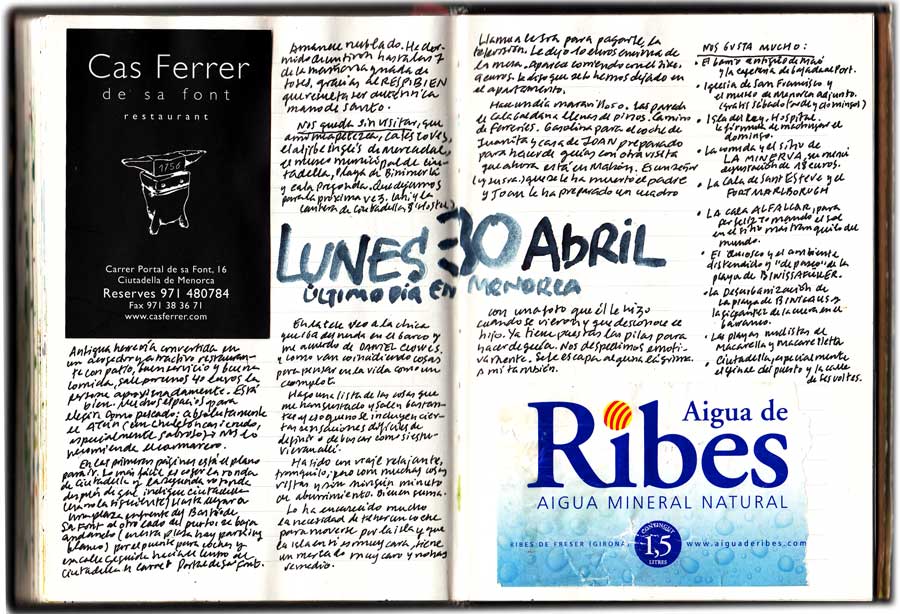 Cas Ferrer
de sa font
restaurant
1756
Carrer Portal de sa Font, 16
Ciutadella de Menorca
Reserves 971 480784
Fax 971 38 36 71
www.casferrer.com
Antigua herrería convertida en
un acogedor y atractivo restauran-
te con patio, buen servicio y buena
comida, sale por unos 40 euros la
persona aproximadamente. Está
bien. Muchos espacios para
elegir. Como pescado: absolutamente
el ATÚN
especialmente sabroso, y nos lo
recomienda el camarero.
En las primeras páginas está el plano
para ir. Lo más fácil es coger en ronda
de Ciutadella y la segunda rotonda
después de
hasta llegar a
una plaza enfrente del Bastió de
Sa Font al otro lado del puerto. Se baja
andando (en esta plaza hay parking
blanco) por el puente para coches y
en calle seguida hacia el centro de
Ciutadella es carrer Portal de Sa Font.
Amanece nublado. He dor-
mido de un tirón hasta las 7
de la mañana y nada de
toses, gracias al RESPIBIEN
que resulta ser auténtica
mano de santo.
Nos queda sin visitar, que
a mí me apetezca, Cales Coves,
el aljibe inglés de Mercadal,
el museo municipal de Ciu-
tadella, playa de Binimel-la
y cala Pregonda. Que dejamos
para la próxima vez. Lahi y la
cantera de Ciutadella, S'Hostal
LUNES 30 ABRIL
ÚLTIMO DÍA EN MENORCA
En la tele veo a la chica
que iba desnuda en el barco y
me acuerdo de DANIEL CLOWES,
y como van coincidiendo cosas
para pensar en la vida como un
complot.
Hago una lista de las cosas que
me han gustado y salen bastan-
tes y eso que no se incluyen cier-
tas sensaciones difíciles de
definir o de buscar como si estu-
vieran allí.
Ha sido un viaje relajante,
tranquilo, pero con muchas cosas
vistas y sin ningún minuto
de aburrimiento. Bien en suma.
Lo ha encarecido mucho
la necesidad de tener un coche
para moverse por la isla y que
la isla en sí es muy cara, tiene
un mercado muy caro y no hay
remedio.
Llaman a la Sra para pagarle, la
televisión. Le dejo 10 euros encima de
la mesa. Aparece corriendo con el
euros. Le digo que se lo hemos dejado en
el apartamento.
Hace un día maravilloso. Las paredes
de Cala Galdana llenas de pinos. Camino
de Ferreries. Gasolina para el coche de
Juanita y casa de JOAN preparado
para hacer de guías con otra visita
que ahora está en Mahón. Es un señor
(y su sra.) que se le ha muerto el padre
y Joan le ha preparado un cuadro
con una foto que él le hizo
cuando se vieron y que desconoce el
hijo. Ya tiene puestas las pilas para
hacer de guía. Nos despedimos emoti-
vamente. Se le escapa alguna lágrima.
A mí también.
NOS GUSTA MUCHO:
• El barrio antiguo de Maó
y la cafetería de bajada al Port.
• Iglesia de San Francisco y
el museo de Menorca adjunto.
(Gratis sábado tarde y domingos)
• Isla del Rey. Hospital.
La fórmula de madrugar el
domingo.
• La comida y el sitio de
LA MINERVA, su menú
degustación de 18 euros.
• La Cala de Sant Esteve y el
FORT MARLBOROUGH
• LA CALA ALFALCAR, para
ser feliz tomando el sol
en el sitio más tranquilo del
mundo.
• El quiosco y el ambiente
distendido y "de paseo" de la
playa de BINISSAFULLER.
• La desurbanización de
la playa de BINIGAUS y
la gigantez de la cueva en el
barranco.
• Las playas nudistas de
Macarella y Macarelleta
• Ciutadella, especialmente
el final del puerto y la calle
de les voltes.
Aigua de
Ribes
AIGUA MINERAL NATURAL
RIBES DE FRESER (GIRONA)
CONTINGUT
1,5
LITRES
www.aiguaderibes.com